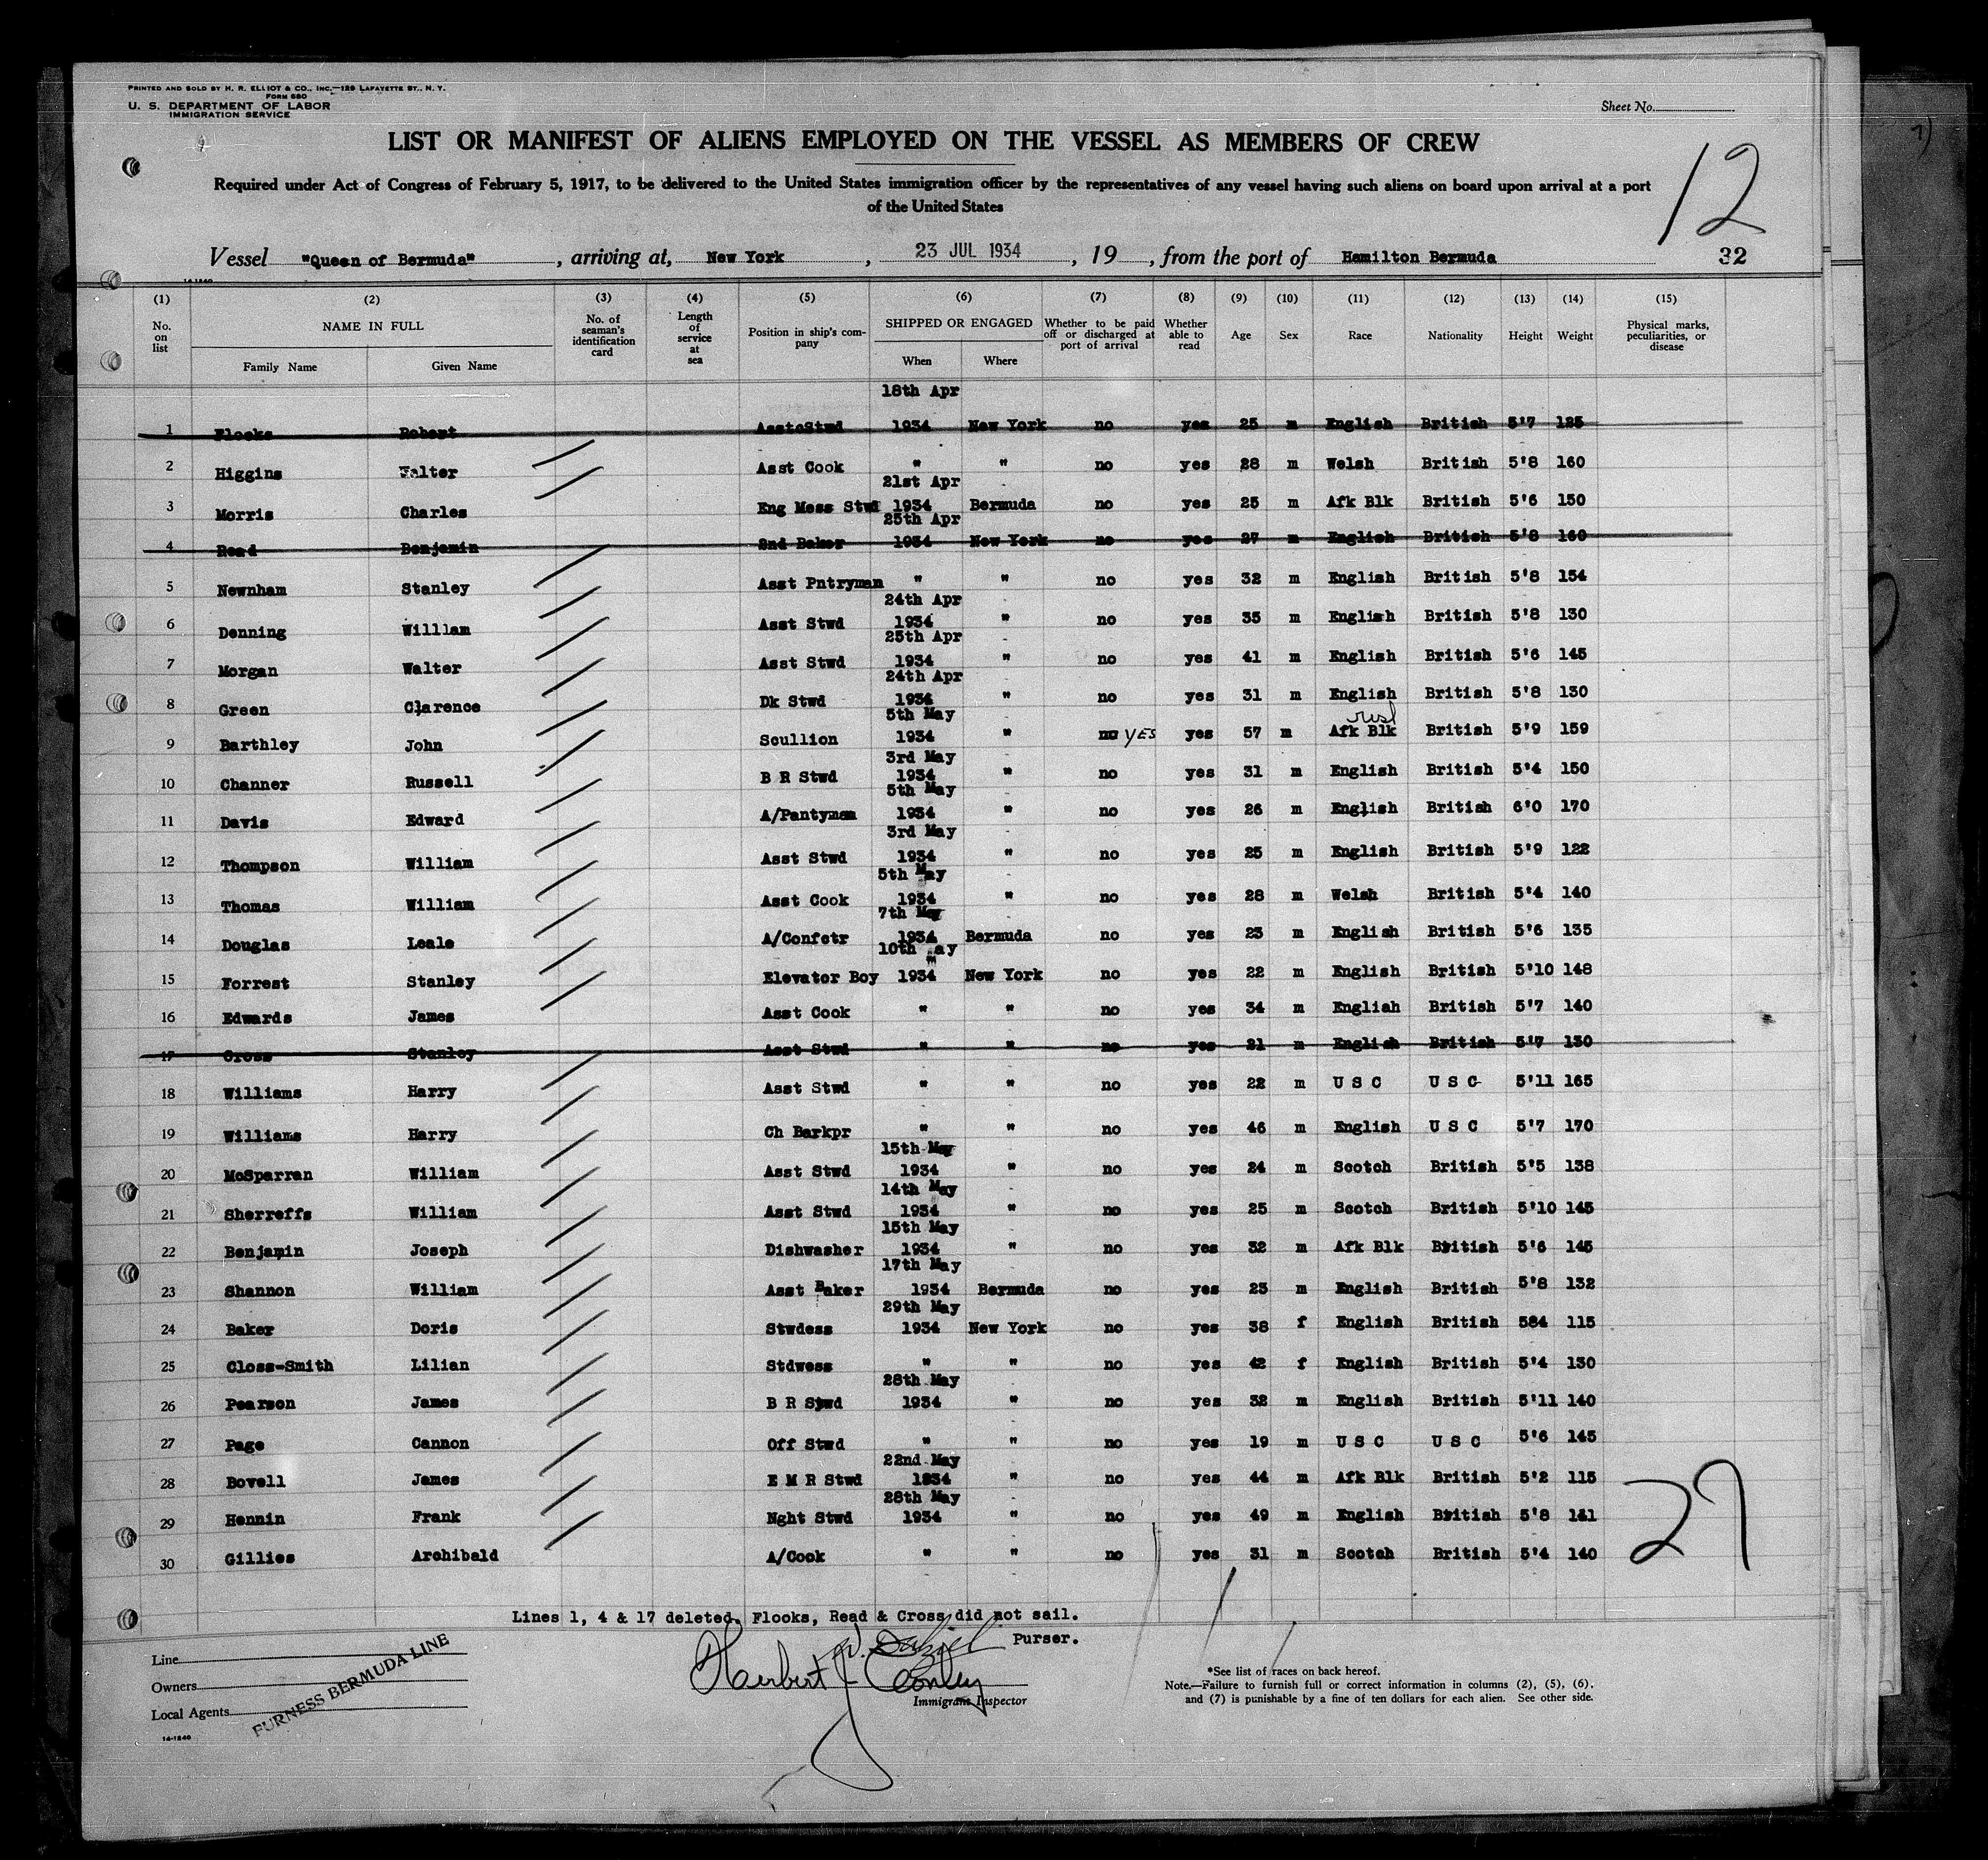 PRINTED AND SOLD BY H. R. ELLIOT & CO., INC.—129 LAFAYETTE ST., N. Y.
FORM 680
U. S. DEPARTMENT OF LABOR
IMMIGRATION SERVICE
Sheet No.
LIST OR MANIFEST OF ALIENS EMPLOYED ON THE VESSEL AS MEMBERS OF CREW
12
Required under Act of Congress of February 5, 1917, to be delivered to the United States immigration officer by the representatives of any vessel having such aliens on board upon arrival at a port
of the United States
Vessel "Queen of Bermuda", arriving at, New York, 23 JUL 1934, 19, from the port of Hamilton Bermuda 32
14-1240
(1) (2) (3) (4) (5) (6) (7) (8) (9) (10) (11) (12) (13) (14) (15)
No. on list NAME IN FULL Family Name Given Name No. of seaman's identification card Length of service at sea Position in ship's company SHIPPED OR ENGAGED When Where Whether to be paid off or discharged at port of arrival Whether able to read Age Sex Race Nationality Height Weight Physical marks, peculiarities, or disease
18th Apr
1 Flooks Robert AsstcStwd 1934 New York no yes 25 m English British 5'7 125
2 Higgins Walter Asst Cook " " no yes 28 m Welsh British 5'8 160
21st Apr
3 Morris Charles Eng Mess Stwd 1934 Bermuda no yes 25 m Afk Blk British 5'6 150
25th Apr
4 Read Benjamin 2nd Baker 1934 New York no yes 27 m English British 5'8 160
5 Newnham Stanley Asst Pntryman " " no yes 32 m English British 5'8 154
24th Apr
6 Denning William Asst Stwd 1934 " no yes 35 m English British 5'8 130
25th Apr
7 Morgan Walter Asst Stwd 1934 " no yes 41 m English British 5'6 145
24th Apr
8 Green Clarence Dk Stwd 1934 " no yes 31 m English British 5'8 130
5th May
9 Barthley John Scullion 1934 " no YES yes 57 m Afk Blk British 5'9 159
3rd May
10 Channer Russell B R Stwd 1934 " no yes 31 m English British 5'4 150
5th May
11 Davis Edward A/Pantyman 1934 " no yes 26 m English British 6'0 170
3rd May
12 Thompson William Asst Stwd 1934 " no yes 25 m English British 5'9 122
5th May
13 Thomas William Asst Cook 1934 " no yes 28 m Welsh British 5'4 140
7th May
14 Douglas Leale A/Confctr 1934 Bermuda no yes 23 m English British 5'6 135
10th May
15 Forrest Stanley Elevator Boy 1934 New York no yes 22 m English British 5'10 148
16 Edwards James Asst Cook " " no yes 34 m English British 5'7 140
17 Cross Stanley Asst Stwd " " no yes 21 m English British 5'7 130
18 Williams Harry Asst Stwd " " no yes 22 m U S C U S C 5'11 165
19 Williams Harry Ch Barkpr " " no yes 46 m English U S C 5'7 170
15th May
20 McSparran William Asst Stwd 1934 " no yes 24 m Scotch British 5'5 138
14th May
21 Sherreffs William Asst Stwd 1934 " no yes 25 m Scotch British 5'10 145
15th May
22 Benjamin Joseph Dishwasher 1934 " no yes 32 m Afk Blk British 5'6 145
17th May
23 Shannon William Asst Baker 1934 Bermuda no yes 23 m English British 5'8 132
29th May
24 Baker Doris Stwdess 1934 New York no yes 38 f English British 584 115
25 Closs-Smith Lilian Stdwess " " no yes 42 f English British 5'4 130
28th May
26 Pearson James B R Stwd 1934 " no yes 32 m English British 5'11 140
27 Page Cannon Off Stwd " " no yes 19 m U S C U S C 5'6 145
22nd May
28 Bovell James E M R Stwd 1934 " no yes 44 m Afk Blk British 5'2 115
28th May
29 Hennin Frank Nght Stwd 1934 " no yes 49 m English British 5'8 141
30 Gillies Archibald A/Cook " " no yes 31 m Scotch British 5'4 140
27
Lines 1, 4 & 17 deleted. Flooks, Read & Cross did not sail.
Purser.
Line
Owners
Local Agents
FURNESS BERMUDA LINE
Herbert J. Conley
Immigrant Inspector
*See list of races on back hereof.
Note.—Failure to furnish full or correct information in columns (2), (5), (6),
and (7) is punishable by a fine of ten dollars for each alien. See other side.
14-1240